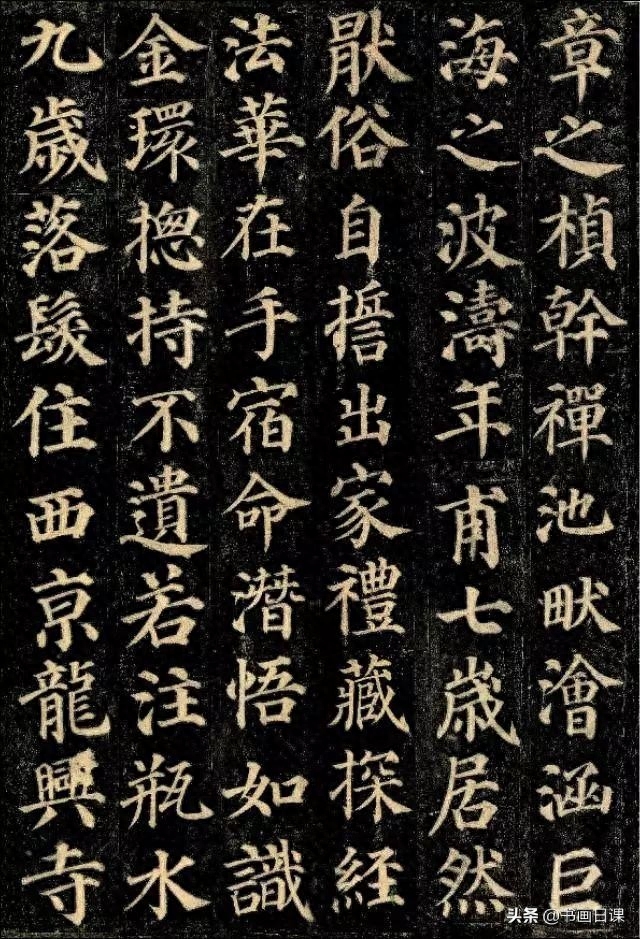 章之楨幹禪池畎澮涵巨
海之波濤年甫七歲居然
猒俗自誓出家禮藏探經
法華在手宿命潛悟如識
金環揔持不遺若注瓶水
九歲落髮住西亰龍興寺
头条 @书画日课